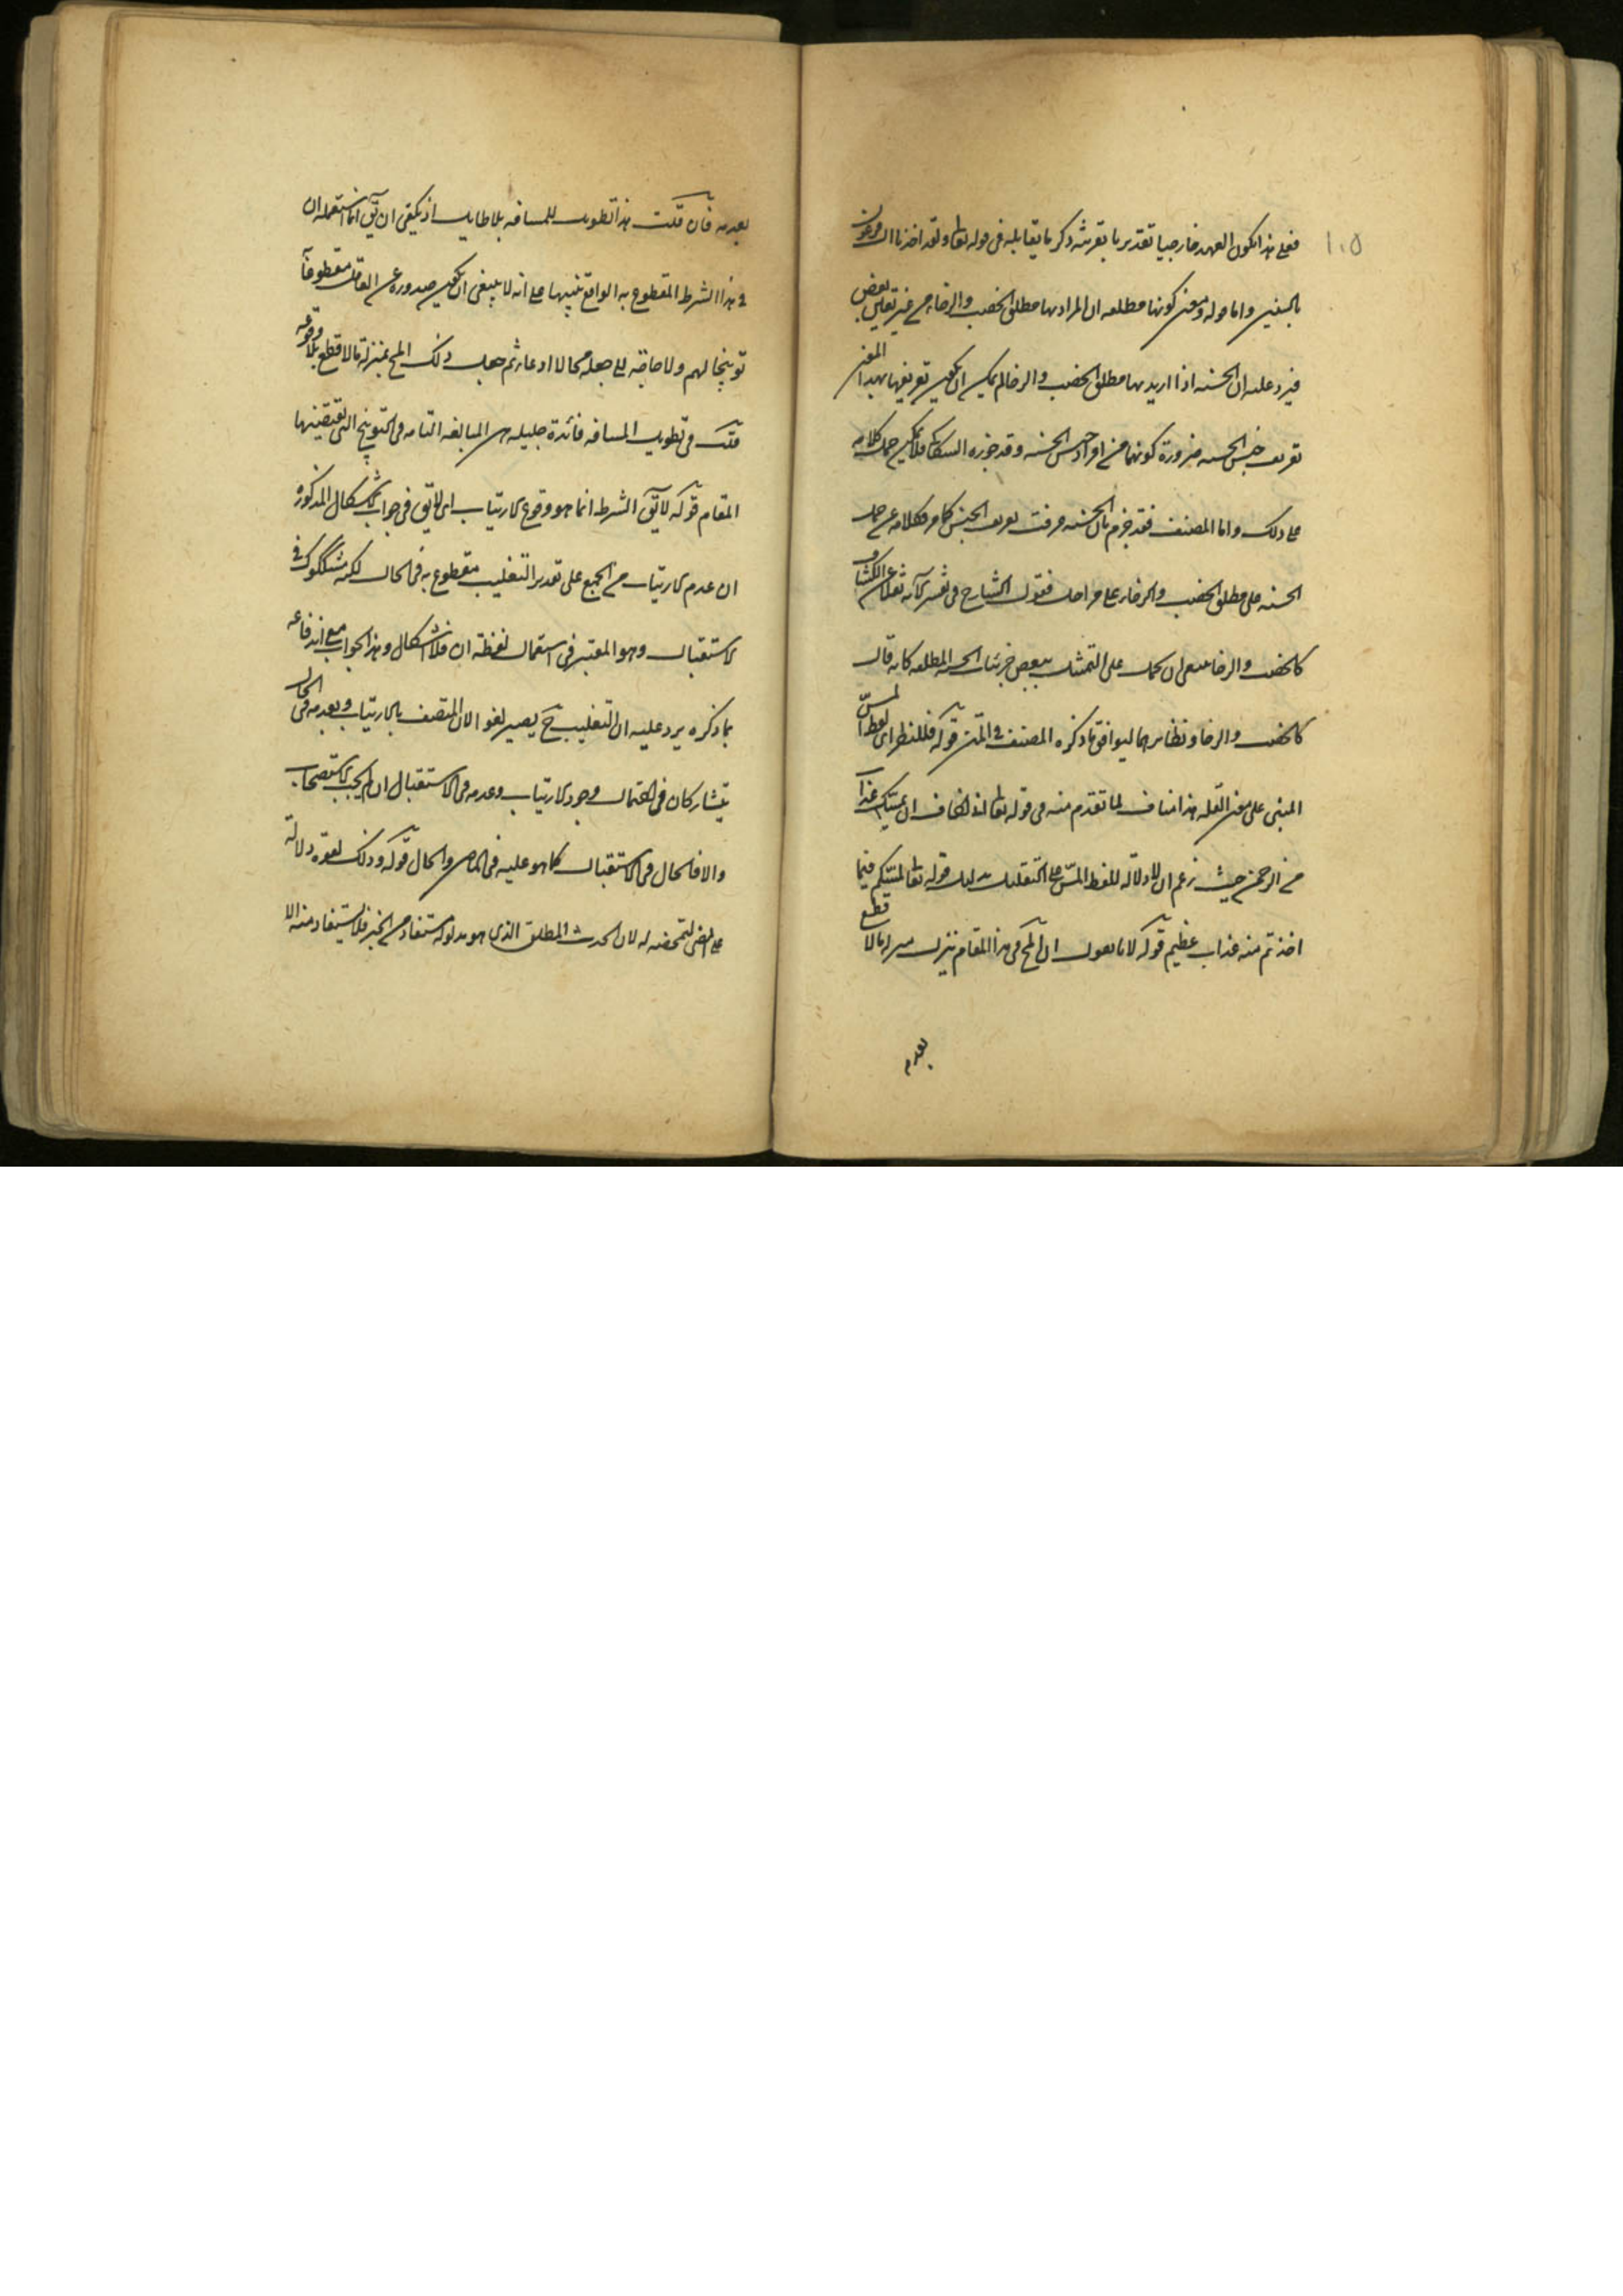 ١٠٥
فعلى هذا يكون العهد خارجيا تقديريا بقرينة ذكر ما يقابله فى قوله تعا ولقد اخذنا ال فرعون
بالسنين واما قوله ومعنى كونها مطلقه ان المراد بها مطلق الخصب والرخاء من غير تعيين بعض
فيرد عليه ان الحسنه اذا اريد بها مطلق الخصب والرخا لم يمكن ان يكون تعريفها بهذا المعنى
تعريف جنس الحسنه ضرورة كونهما من افراد جنس الحسنه وقد جوزه السكاكى فلا يمكن حمل كلامه
على ذلك واما المصنف فقد جزم بان الحسنه عرفت تعريف الجنس كما مر فكلامه عن حمل
الحسنه على مطلق الخصب والرخاء على مراحل فقول الشارح فى تفسير الآيه نقلا عن الكشاف
كالخصب والرخا ينبغى ان يحمل على التمثيل ببعض جزئيات الحسنه المطلقه كانه قال
كالخصب والرخا ونظايرهما ليوافق ما ذكره المصنف فى المتن قوله فللنظر الى لفظ المسّ
المبنى على معنى القله هذا مناف لما تقدم منه فى قوله تعا انى اخاف ان يمسك عذاب
من الرحمن حيث زعم ان لا دلاله للفظ المسّ على التقليل بدليل قوله تعا لمسكم فيما
اخذتم منه عذاب عظيم قوله لانا نقول ان المح فى هذا المقام ينزل منزلة ما لا قطع
بعدمه
بعدمه فان قلت هذا تطويل للمسافه بلا طايل اذ يكفى ان يق انما استعمله ان
فى هذا الشرط المقطوع به الواقع تنبيها على انه لا ينبغى ان يكون صدوره عن العاقل مقطوعا
توبيخا لهم ولا حاجة الى جعله محالا ادعاء ثم جعل ذلك المح بمنزلة ما لا قطع بلا وقوعه
قلت فى تطويل المسافه فائدة جليله هى المبالغه التامه فى التوبيخ التى يقتضيها
المقام قوله لا يق الشرط انما هو وقوع الارتياب اى لا يق فى جواب الاشكال المذكور
ان عدم الارتياب من الجميع على تقدير التغليب مقطوع به فى الحال لكنه مشكوك فى
الاستقبال وهو المعتبر فى استعمال لفظة ان فلا اشكال وهذا الجواب مع اندفاعه
بما ذكره يرد عليه ان التغليب ح يصير لغوا لان المتصف بالارتياب وبعدمه فى الحال
يتشاركان فى احتمال وجود الارتياب وعدمه فى الاستقبال ان لم يجب الاستصحاب
والا فالحال فى الاستقبال كما هو عليه فى الماضى والحال قوله وذلك لقوة دلالة
على المضى لتمحضه له لان الحدث المطلق الذى هو مدلوله استفاد من الخبر فلا يستفاد منه الا